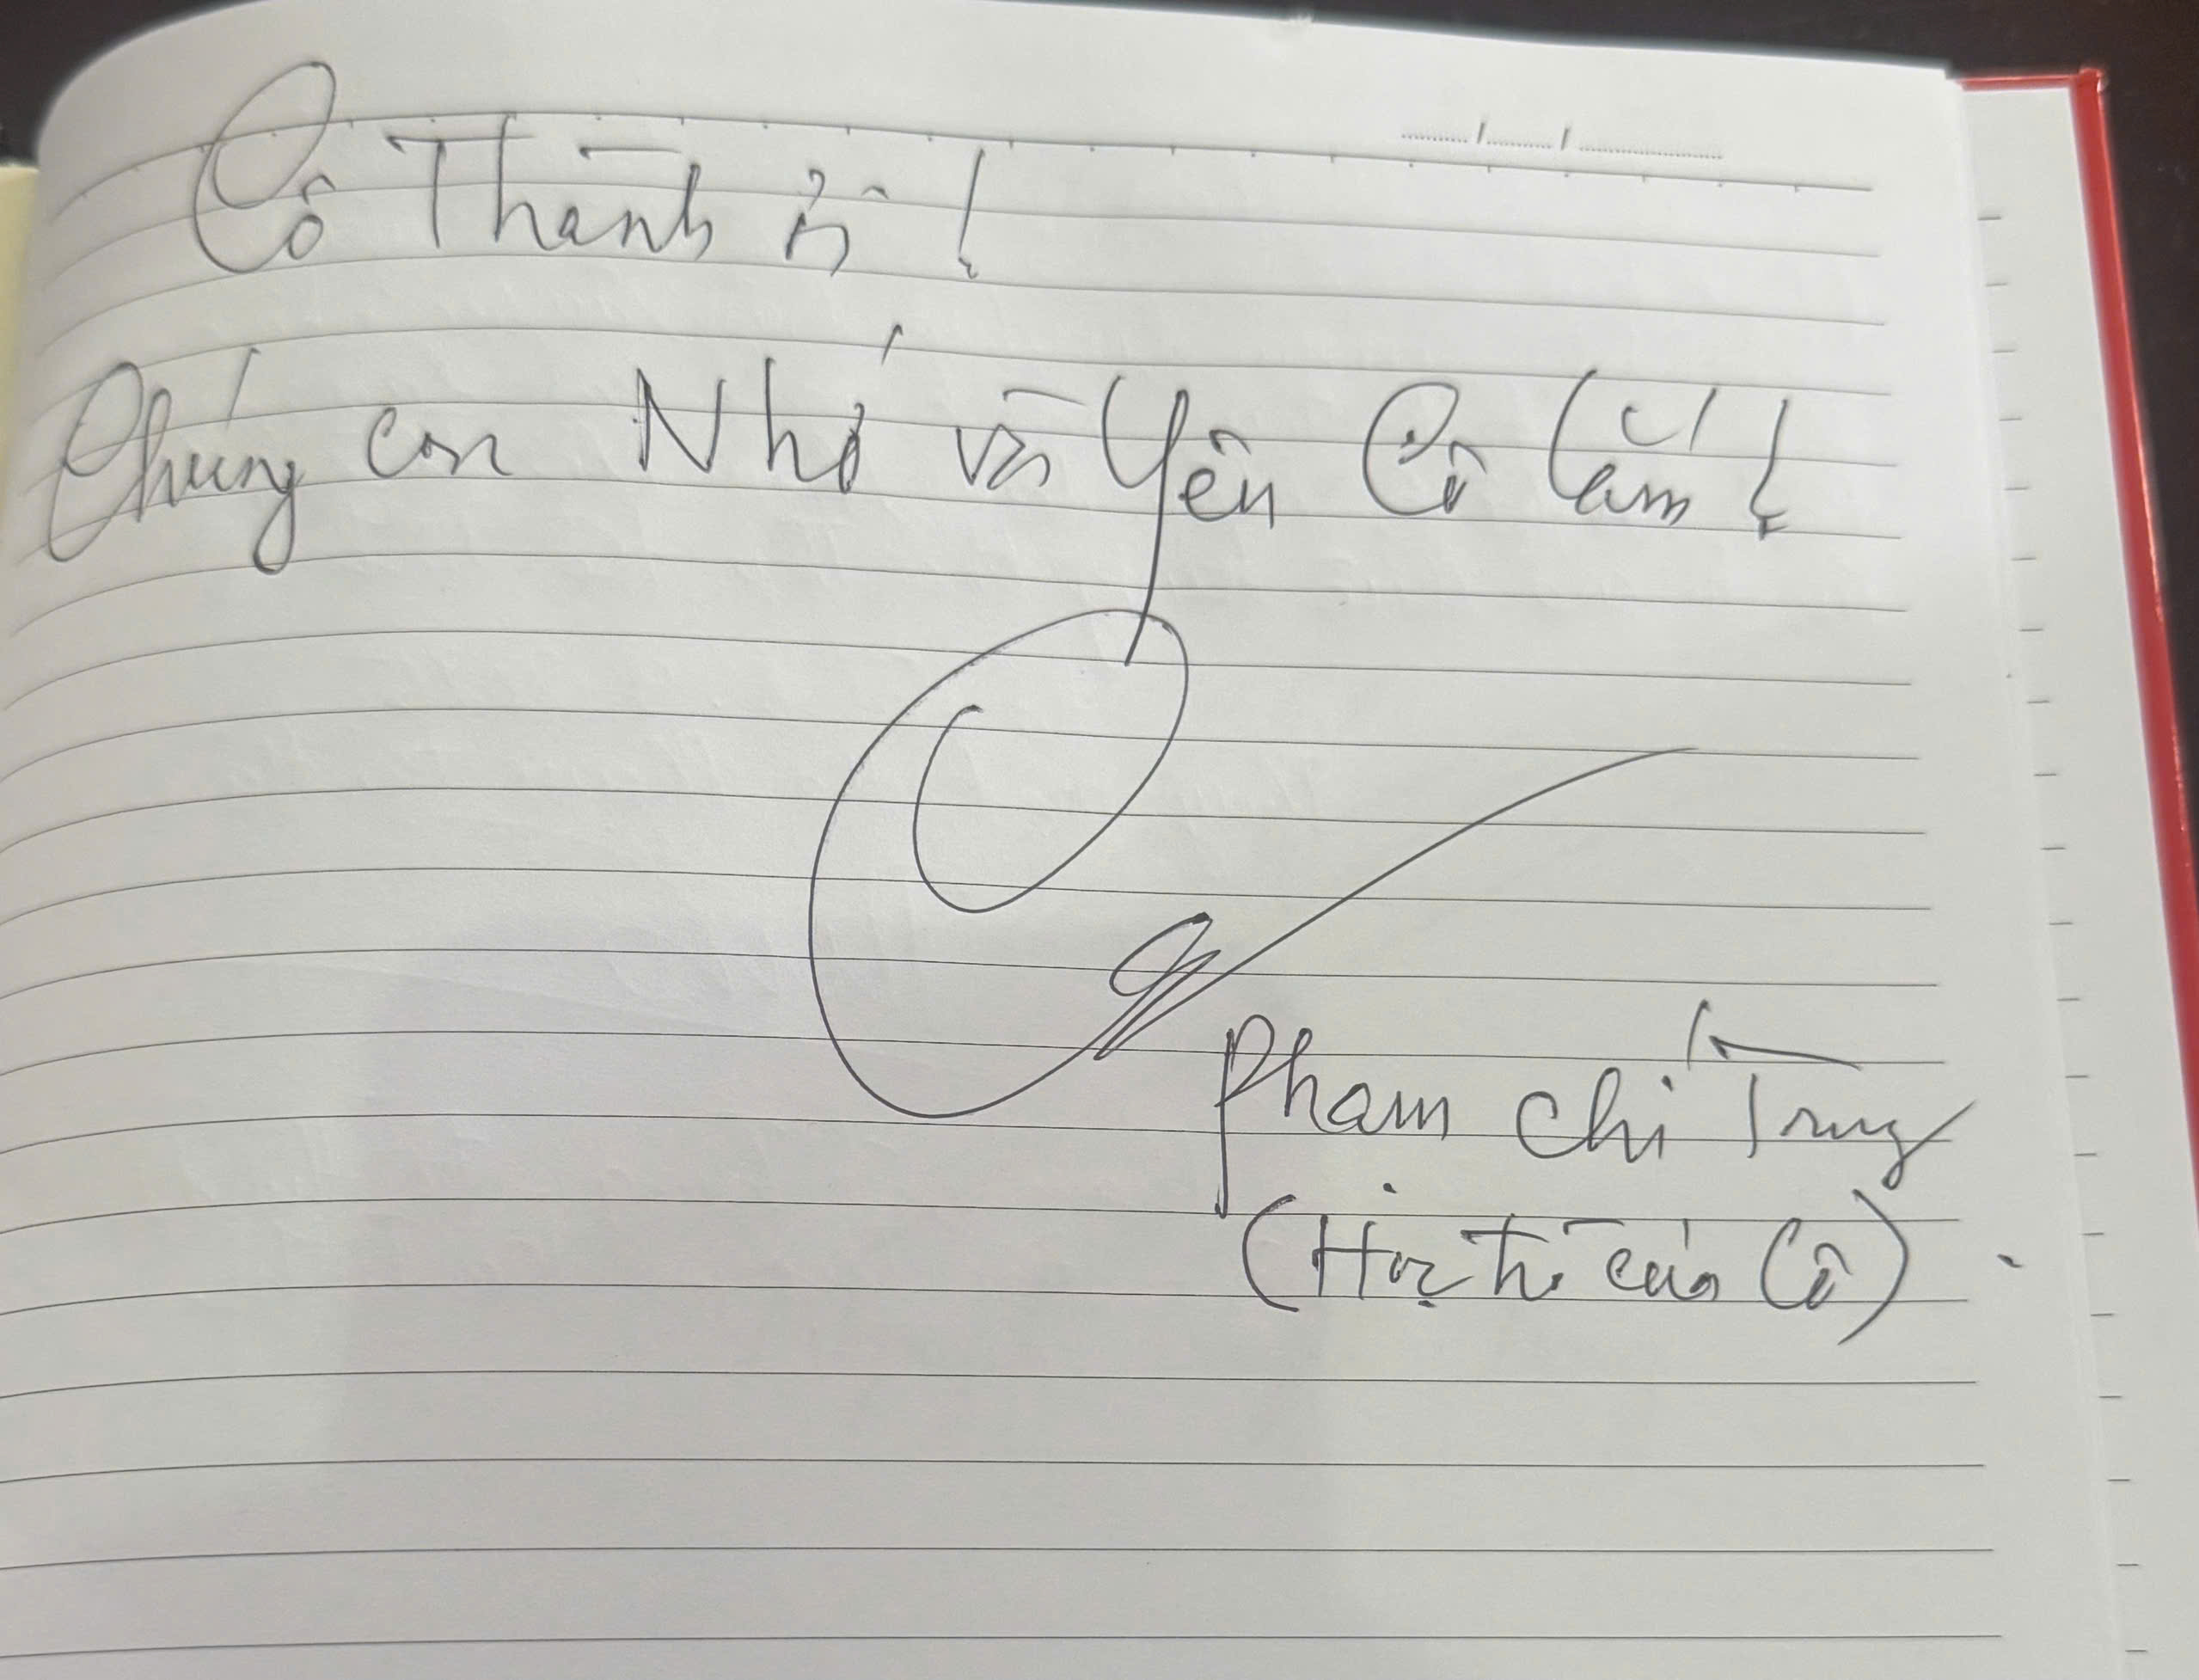 Cô Thành ơi !
Chúng con Nhớ và Yên Cô lắm !
Phạm Chí Trung
(Học trò của Cô) .